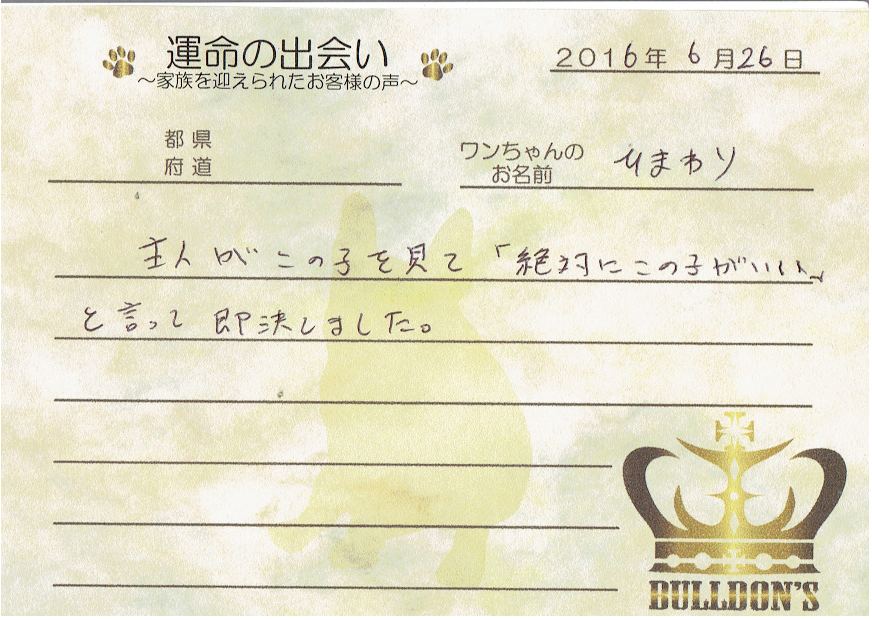 運命の出会い
～家族を迎えられたお客様の声～
2016年 6月26日
都県
府道
ワンちゃんの
お名前
ひまわり
主人がこの子を見て「絶対にこの子がいい」
と言って即決しました。
BULLDON'S